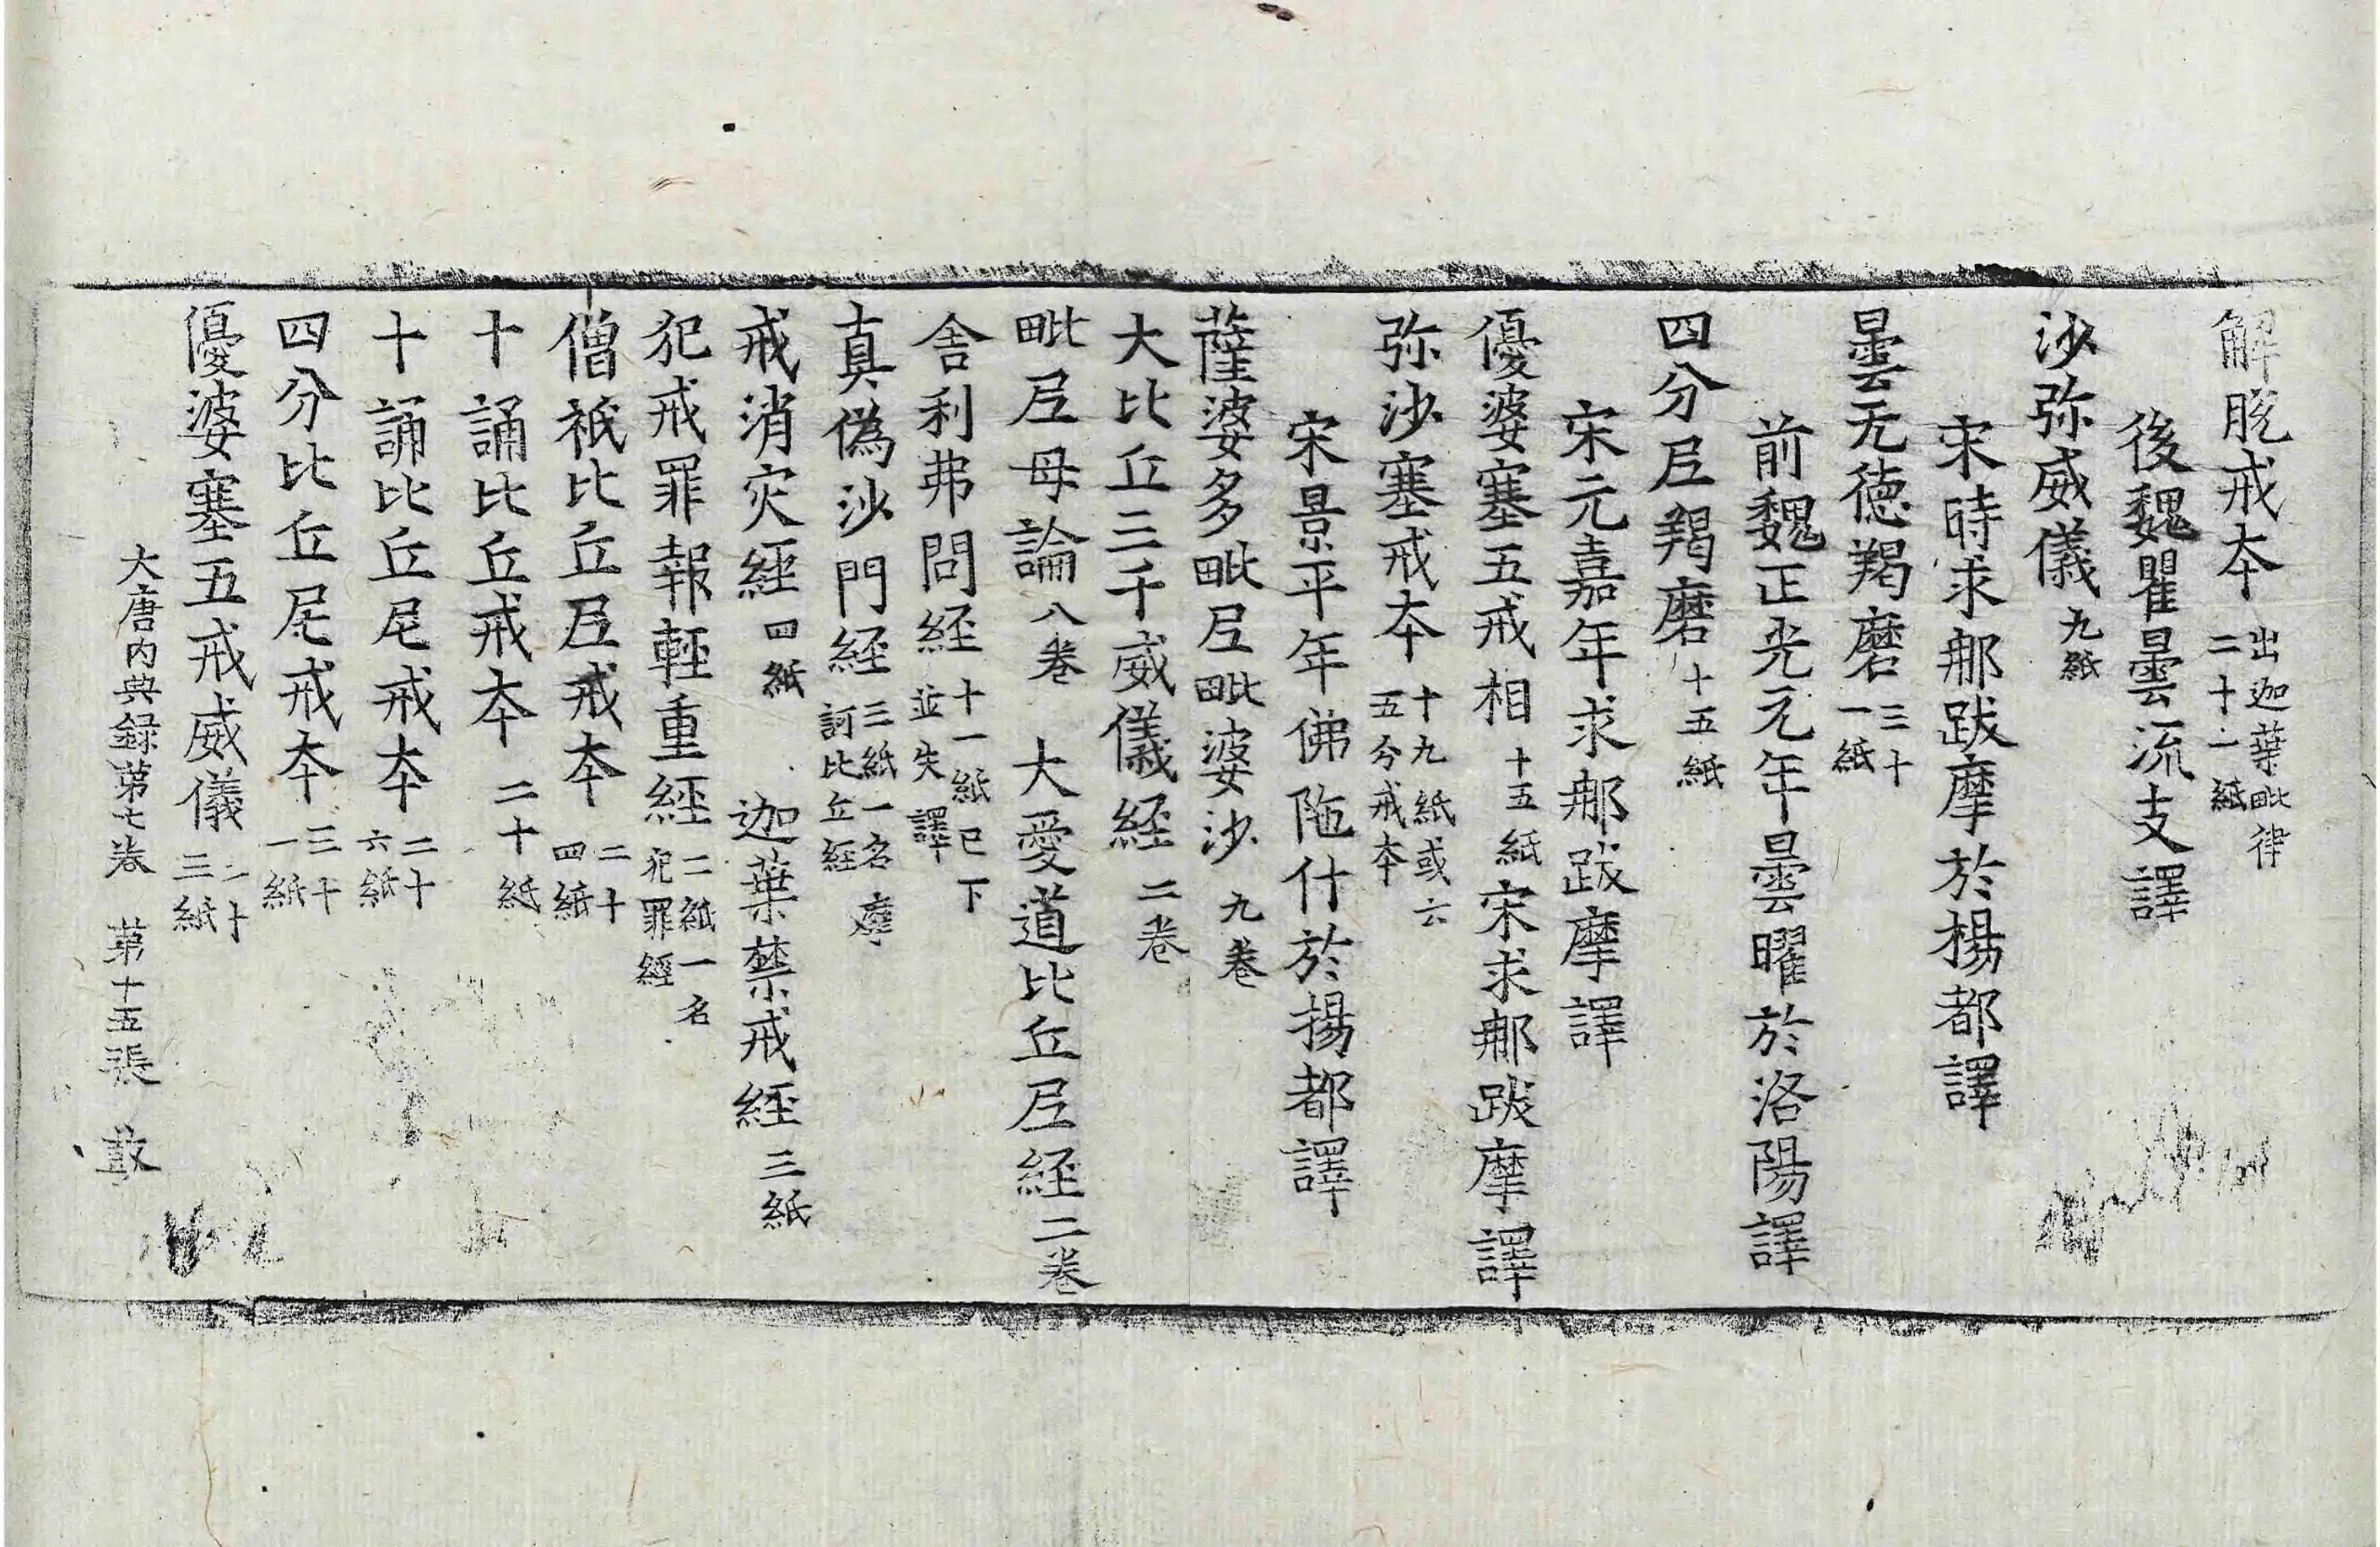 解脫戒夲出迦葉毗律二十一紙
後魏瞿曇流支譯
沙弥威儀九紙
宋時求郍跋摩於楊都譯
曇无德羯磨三十一紙
前魏正光元年曇曜於洛陽譯
四分𡰱羯磨十五紙
宋元嘉年求郍跋摩譯
優婆塞五戒相十五紙宋求郍跋摩譯
弥沙塞戒夲十九紙或六五分戒夲
宋景平年佛陁什於揚都譯
薩婆多毗𡰱毗婆沙九卷
大比丘三千威儀経二卷
毗𡰱母論八卷 大愛道比丘𡰱経二卷
舍利弗問経十一紙已下並失譯
真偽沙門経三紙一名摩訶比丘経
戒消灾経四紙 迦葉禁戒経三紙
犯戒罪報輕重経二紙一名犯罪經
僧祇比丘𡰱戒夲二十四紙
十誦比丘戒夲二十紙
十誦比丘尼戒夲二十六紙
四分比丘尼戒夲三十一紙
優婆塞五戒威儀二十三紙
大唐内典録苐七卷 苐十五張